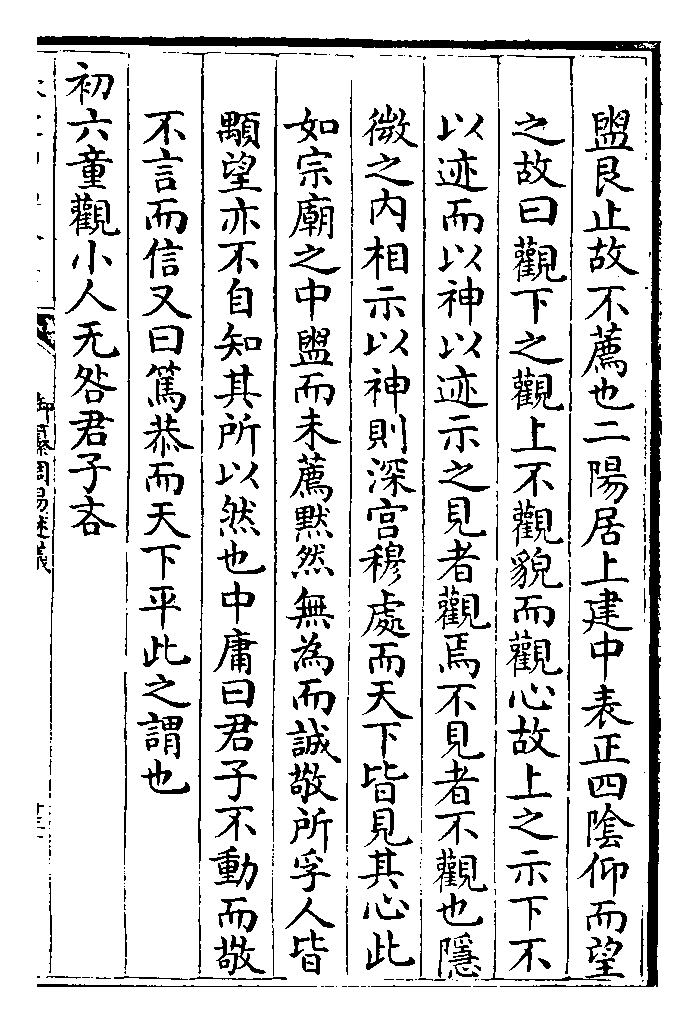 盥艮止故不薦也二陽居上建中表正四隂仰而望
之故曰觀下之觀上不觀貌而觀心故上之示下不
以迹而以神以迹示之見者觀焉不見者不觀也隱
微之内相示以神則深宫穆處而天下皆見其心此
如宗廟之中盥而未薦黙然無為而誠敬所孚人皆
顒望亦不自知其所以然也中庸曰君子不動而敬
不言而信又曰篤恭而天下平此之謂也
初六童觀小人无咎君子吝
御纂周易述義